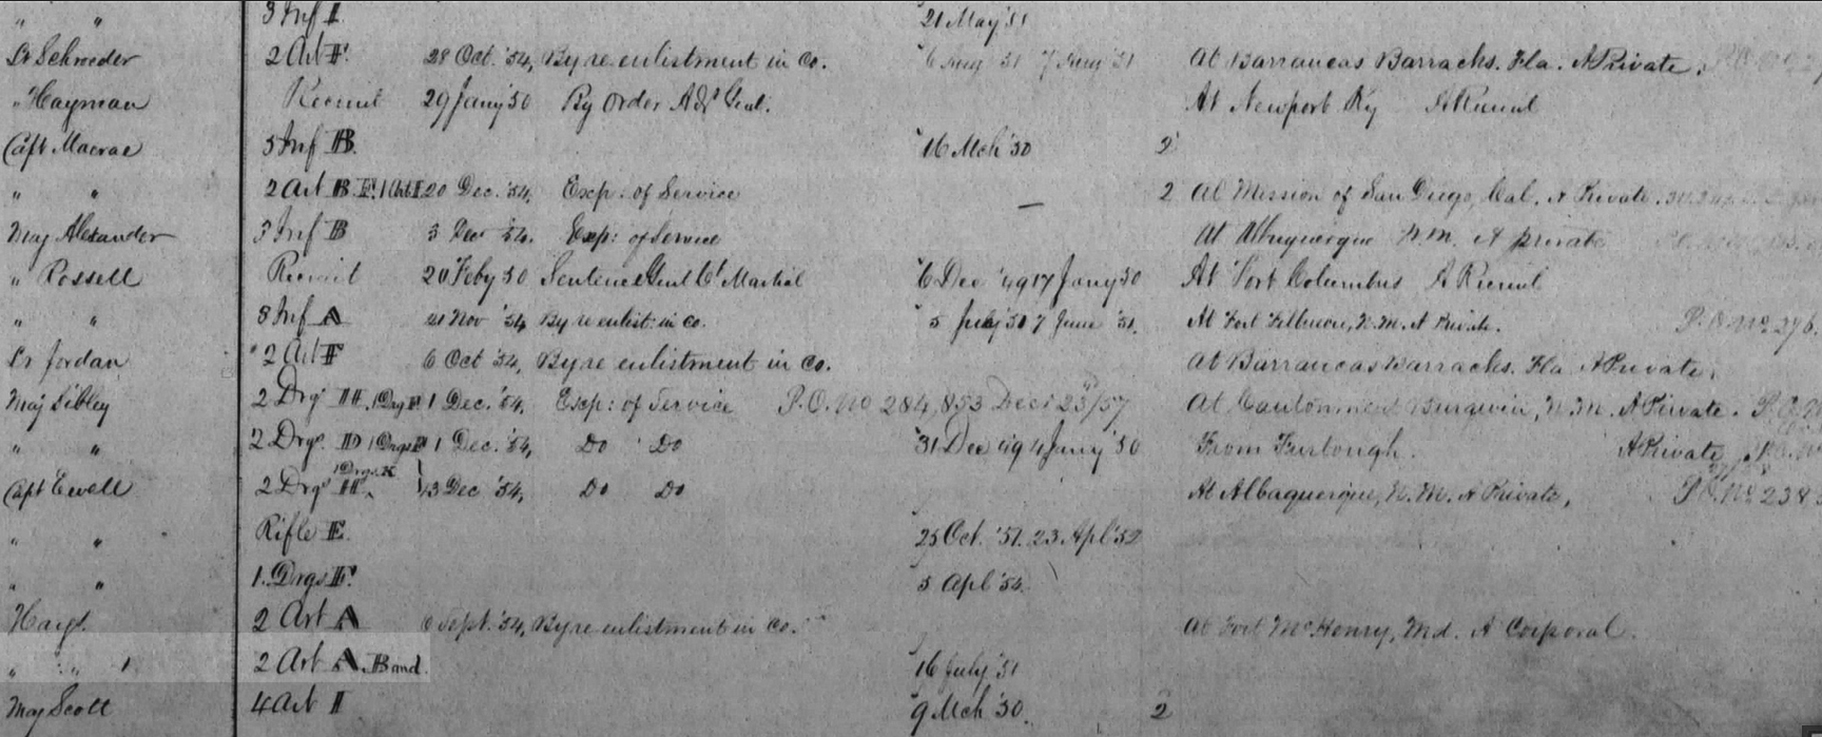 " " 3 Inf I 21 May '51
Lt Schroeder 2 Art F 28 Oct. '54, By re enlistment in Co. 6 Aug 51 7 Aug 51 At Barrancas Barracks. Fla. A Private.
" Hayman Recruit 29 Jany '50 By Order Adjt Genl. At Newport Ky A Recruit
Capt Macrae 3 Inf B. 16 Mch '50 2
" " 2 Art B. 20 Dec. '54, Exp: of Service — 2 At Mission of San Diego, Cal. A Private.
Maj Alexander 3 Inf B 3 Dec '54. Exp: of Service At Albuquerque N.M. A private
" Rossell Recruit 20 Feby 50 Sentence Genl Ct Martial 6 Dec '49 17 Jany 50 At Fort Columbus A Recruit
" " 8 Inf A 21 Nov '54 By re enlist: in Co. 5 7 June '51. At Fort Fillmore, N.M. A Private. P.O. No 276.
Lt Jordan 2 Art F 6 Oct '54, By re enlistment in Co. At Barrancas Barracks. Fla A Private.
Maj Sibley 2 Drgs H. 1 Dec. '54. Exp: of Service P.O. No 284,853 Decr 23/57 At Cantonment Burgwin, N.M. A Private.
" " 2 Drgs. D 1 Dec. '54, Do Do 31 Dec '49 4 Jany '50 From Furlough. A Private
1 Drgs. K
Capt Ewell 2 Drgs H. 13 Dec '54, Do Do At Albaquerque, N.M. A Private, P.O. No 238
" " Rifle E. 25 Oct. '51. 23 Apl '52
" " 1. Drgs F. 5 Apl '54.
" Hays. 2 Art A 6 Sept. '54, By re enlistment in Co. At Fort McHenry, Md. A Corporal.
" " 1 2 Art A. Band. 16 July '51
Maj Scott 4 Art I 9 Mch '50. 2